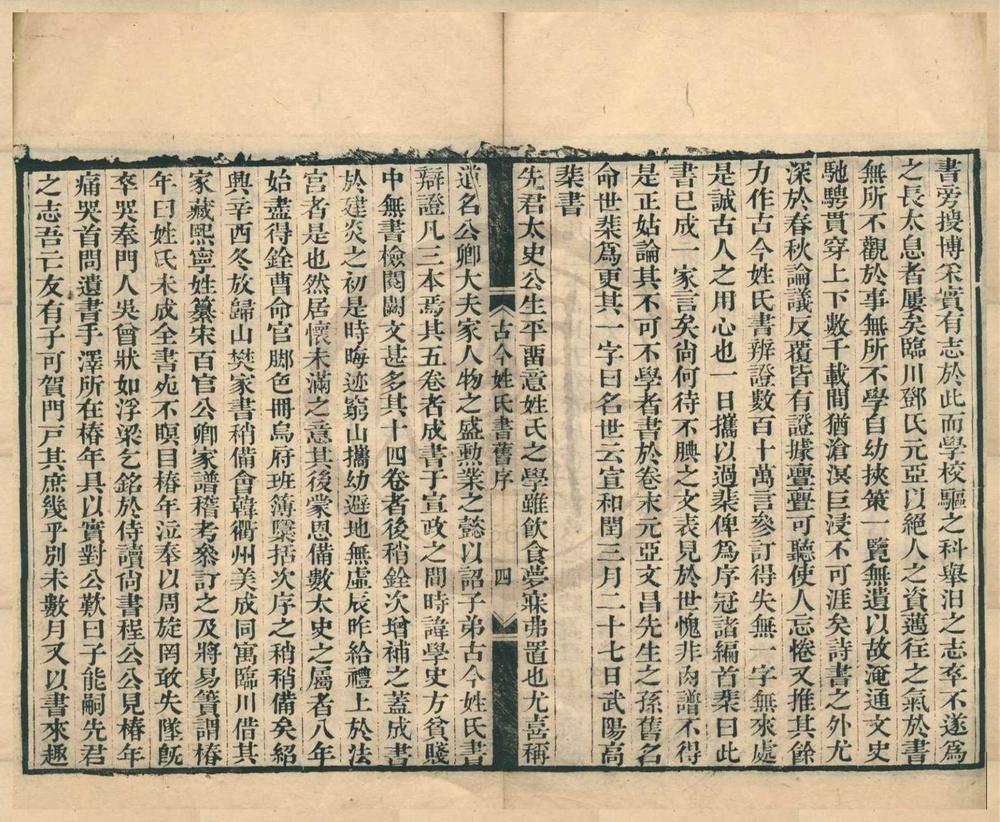 書旁搜博采實有志於此而學校驅之科舉汨之志卒不遂爲
之長太息者屢矣臨川鄧氏元亞以絕人之資邁往之氣於書
無所不觀於事無所不學自幼挾策一覽無遺以故淹通文史
馳騁貫穿上下數千載間猶滄溟巨浸不可涯矣詩書之外尤
深於春秋論議反覆皆有證據亹亹可聽使人忘倦又推其餘
力作古今姓氏書辨證數百十萬言參訂得失無一字無來處
是誠古人之用心也一日攜以過棐俾爲序冠諸編首棐曰此
書已成一家言矣尙何待不腆之文表見於世愧非肉譜不得
是正姑論其不可不學者書於卷末元亞文昌先生之孫舊名
命世棐爲更其一字曰名世云宣和閏三月二十七日武陽高
棐書
先君太史公生平畱意姓氏之學雖飲食夢寐弗置也尤喜稱
古今姓氏書舊序
四
道名公卿大夫家人物之盛勲業之懿以詔子弟古今姓氏書
辯證凡三本焉其五卷者成書于宣政之間時諱學史方貧賤
中無書檢閱闕文甚多其十四卷者後稍銓次增補之蓋成書
於建炎之初是時晦迹窮山攜幼避地無虛辰昨給禮上於法
宮者是也然居懷未滿之意其後蒙恩備數太史之屬者八年
始盡得銓曹命官脚色冊烏府班簿檃括次序之稍稍備矣紹
興辛酉冬放歸山樊家書稍備會韓衢州美成同寓臨川借其
家藏熙寧姓纂宋百官公卿家譜稽考叅訂之及將易簀謂椿
年曰姓氏未成全書死不瞑目椿年泣奉以周旋罔敢失墜旣
卒哭奉門人吳曾狀如浮梁乞銘於侍讀尙書程公公見椿年
痛哭首問遺書手澤所在椿年具以實對公歎曰子能嗣先君
之志吾亡友有子可賀門戸其庶幾乎別未數月又以書來趣